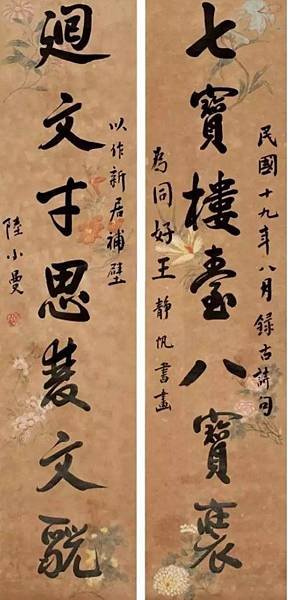 民國十九年八月錄古詩句
七寶樓臺八寶
為同好王靜帆書畫
以作新居補壁
廻文才思文貌
陸小曼